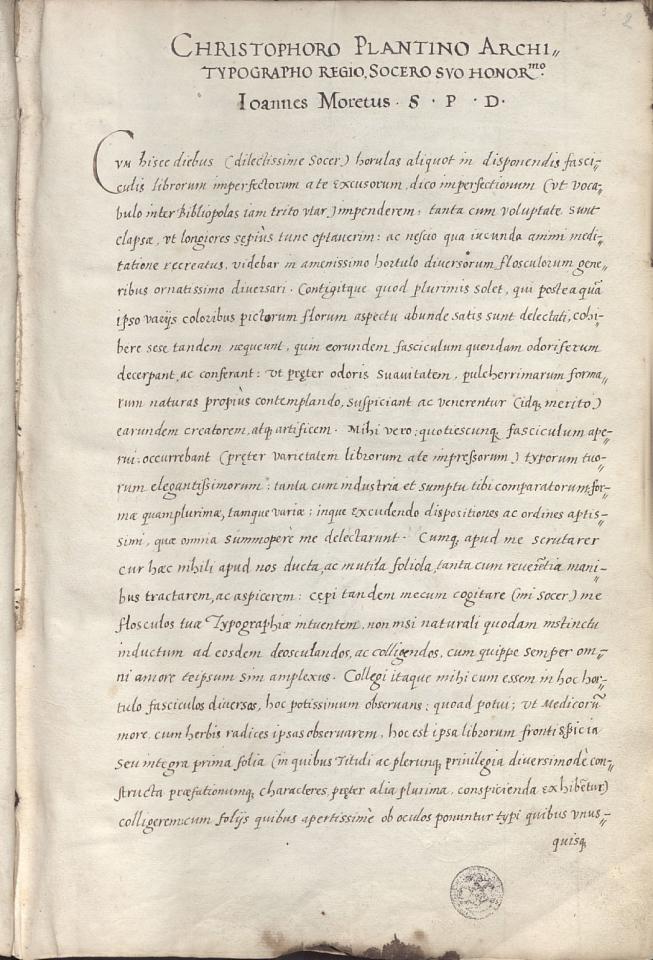 2
CHRISTOPHORO PLANTINO ARCHI„
TYPOGRAPHO REGIO, SOCERO SVO HONOR.mo
Ioannes Moretus · S · P · D ·
CVM hisce diebus (dilectissime Socer) horulas aliquot in disponendis fasci„
culis librorum imperfectorum a te excusorum, dico imperfectionum (vt voca„
bulo inter Bibliopolas iam trito vtar) impenderem; tanta cum voluptate sunt
elapsæ, vt longiores sepiùs tunc optauerim: ac nescio qua iucunda animi medi„
tatione recreatus, videbar in amenissimo hortulo diuersorum flosculorum gene„
ribus ornatissimo diuersari. Contigitque quod plurimis solet, qui posteaquā
ipso varijs coloribus pictorum florum aspectu abunde satis sunt delectati, cohi„
bere sese tandem nequeunt, quin eorundem fasciculum quendam odoriferum
decerpant, ac conferant: vt pręter odoris suauitatem, pulcherrimarum forma„
rum naturas propiùs contemplando, suspiciant ac venerentur (idq; merito)
earundem creatorem, atq; artificem. Mihi vero, quotiescunq; fasciculum ape„
rui, occurrebant (pręter varietatem librorum a te impressorum) typorum tuo„
rum elegantissimorum, tanta cum industria et sumptu tibi comparatorum, for„
mæ quamplurimæ, tamque variæ; inque excudendo dispositiones ac ordines aptis„
simi, quæ omnia summoperè me delectarunt. Cumq; apud me scrutarer
cur hæc nihili apud nos ducta, ac mutila foliola, tanta cum reuerētia mani„
bus tractarem, ac aspicerem: cępi tandem mecum cogitare (mi Socer) me
flosculos tuæ Typographiæ intuentem, non nisi naturali quodam instinctu
inductum ad eosdem deosculandos, ac colligendos, cum quippe semper om„
ni amore teipsum sim amplexus. Collegi itaque mihi cum essem in hoc hor„
tulo fasciculos diuersos, hoc potissimum obseruans; quoad potui; vt Medicorū
more, cum herbis radices ipsas obseruarem, hoc est ipsa librorum frontispicia
seu integra prima folia (in quibus Tituli ac plerunq; priuilegia diuersimodè con„
structa præfationumq; characteres, pręter alia plurima, conspicienda exhibētur)
colligerem; cum folijs quibus apertissimè ob oculos ponuntur typi quibus vnus„
quisq;